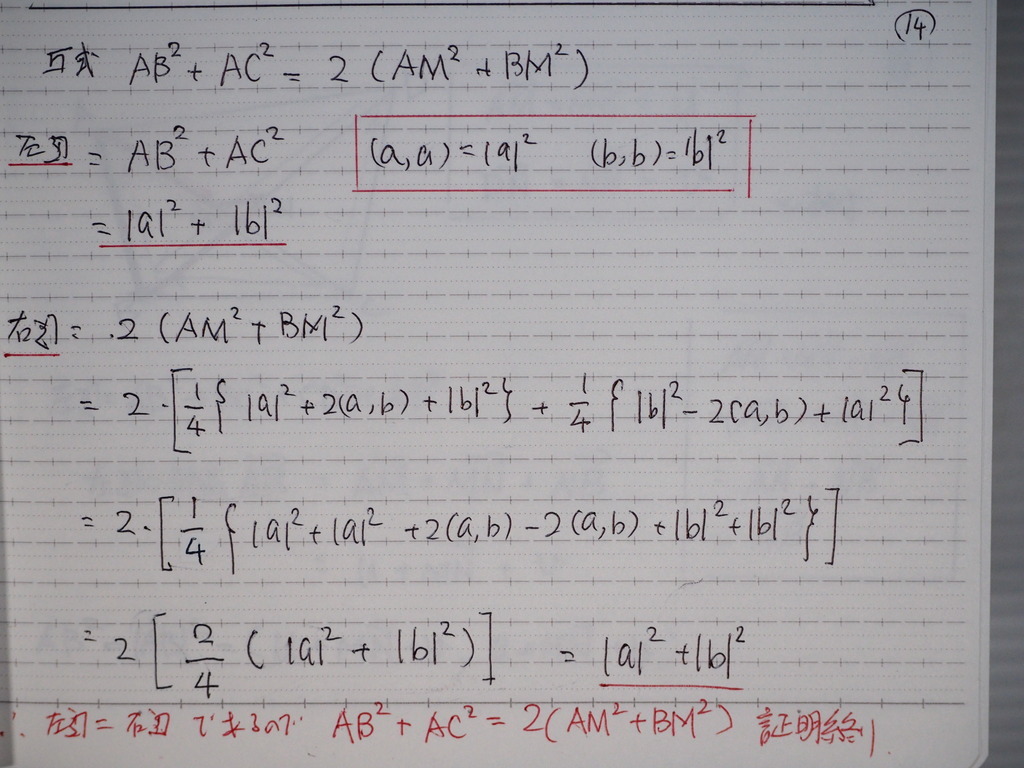 ⑭
与式 AB² + AC² = 2 (AM² + BM²)
左辺 = AB² + AC² (a,a) = |a|² (b,b) = |b|²
= |a|² + |b|²
右辺 = 2 (AM² + BM²)
= 2·[1/4{|a|² + 2(a,b) + |b|²} + 1/4{|b|² - 2(a,b) + |a|²}]
= 2·[1/4{|a|² + |a|² + 2(a,b) - 2(a,b) + |b|² + |b|²}]
= 2[2/4(|a|² + |b|²)] = |a|² + |b|²
∴ 左辺 = 右辺 であるので AB² + AC² = 2(AM² + BM²) 証明終り